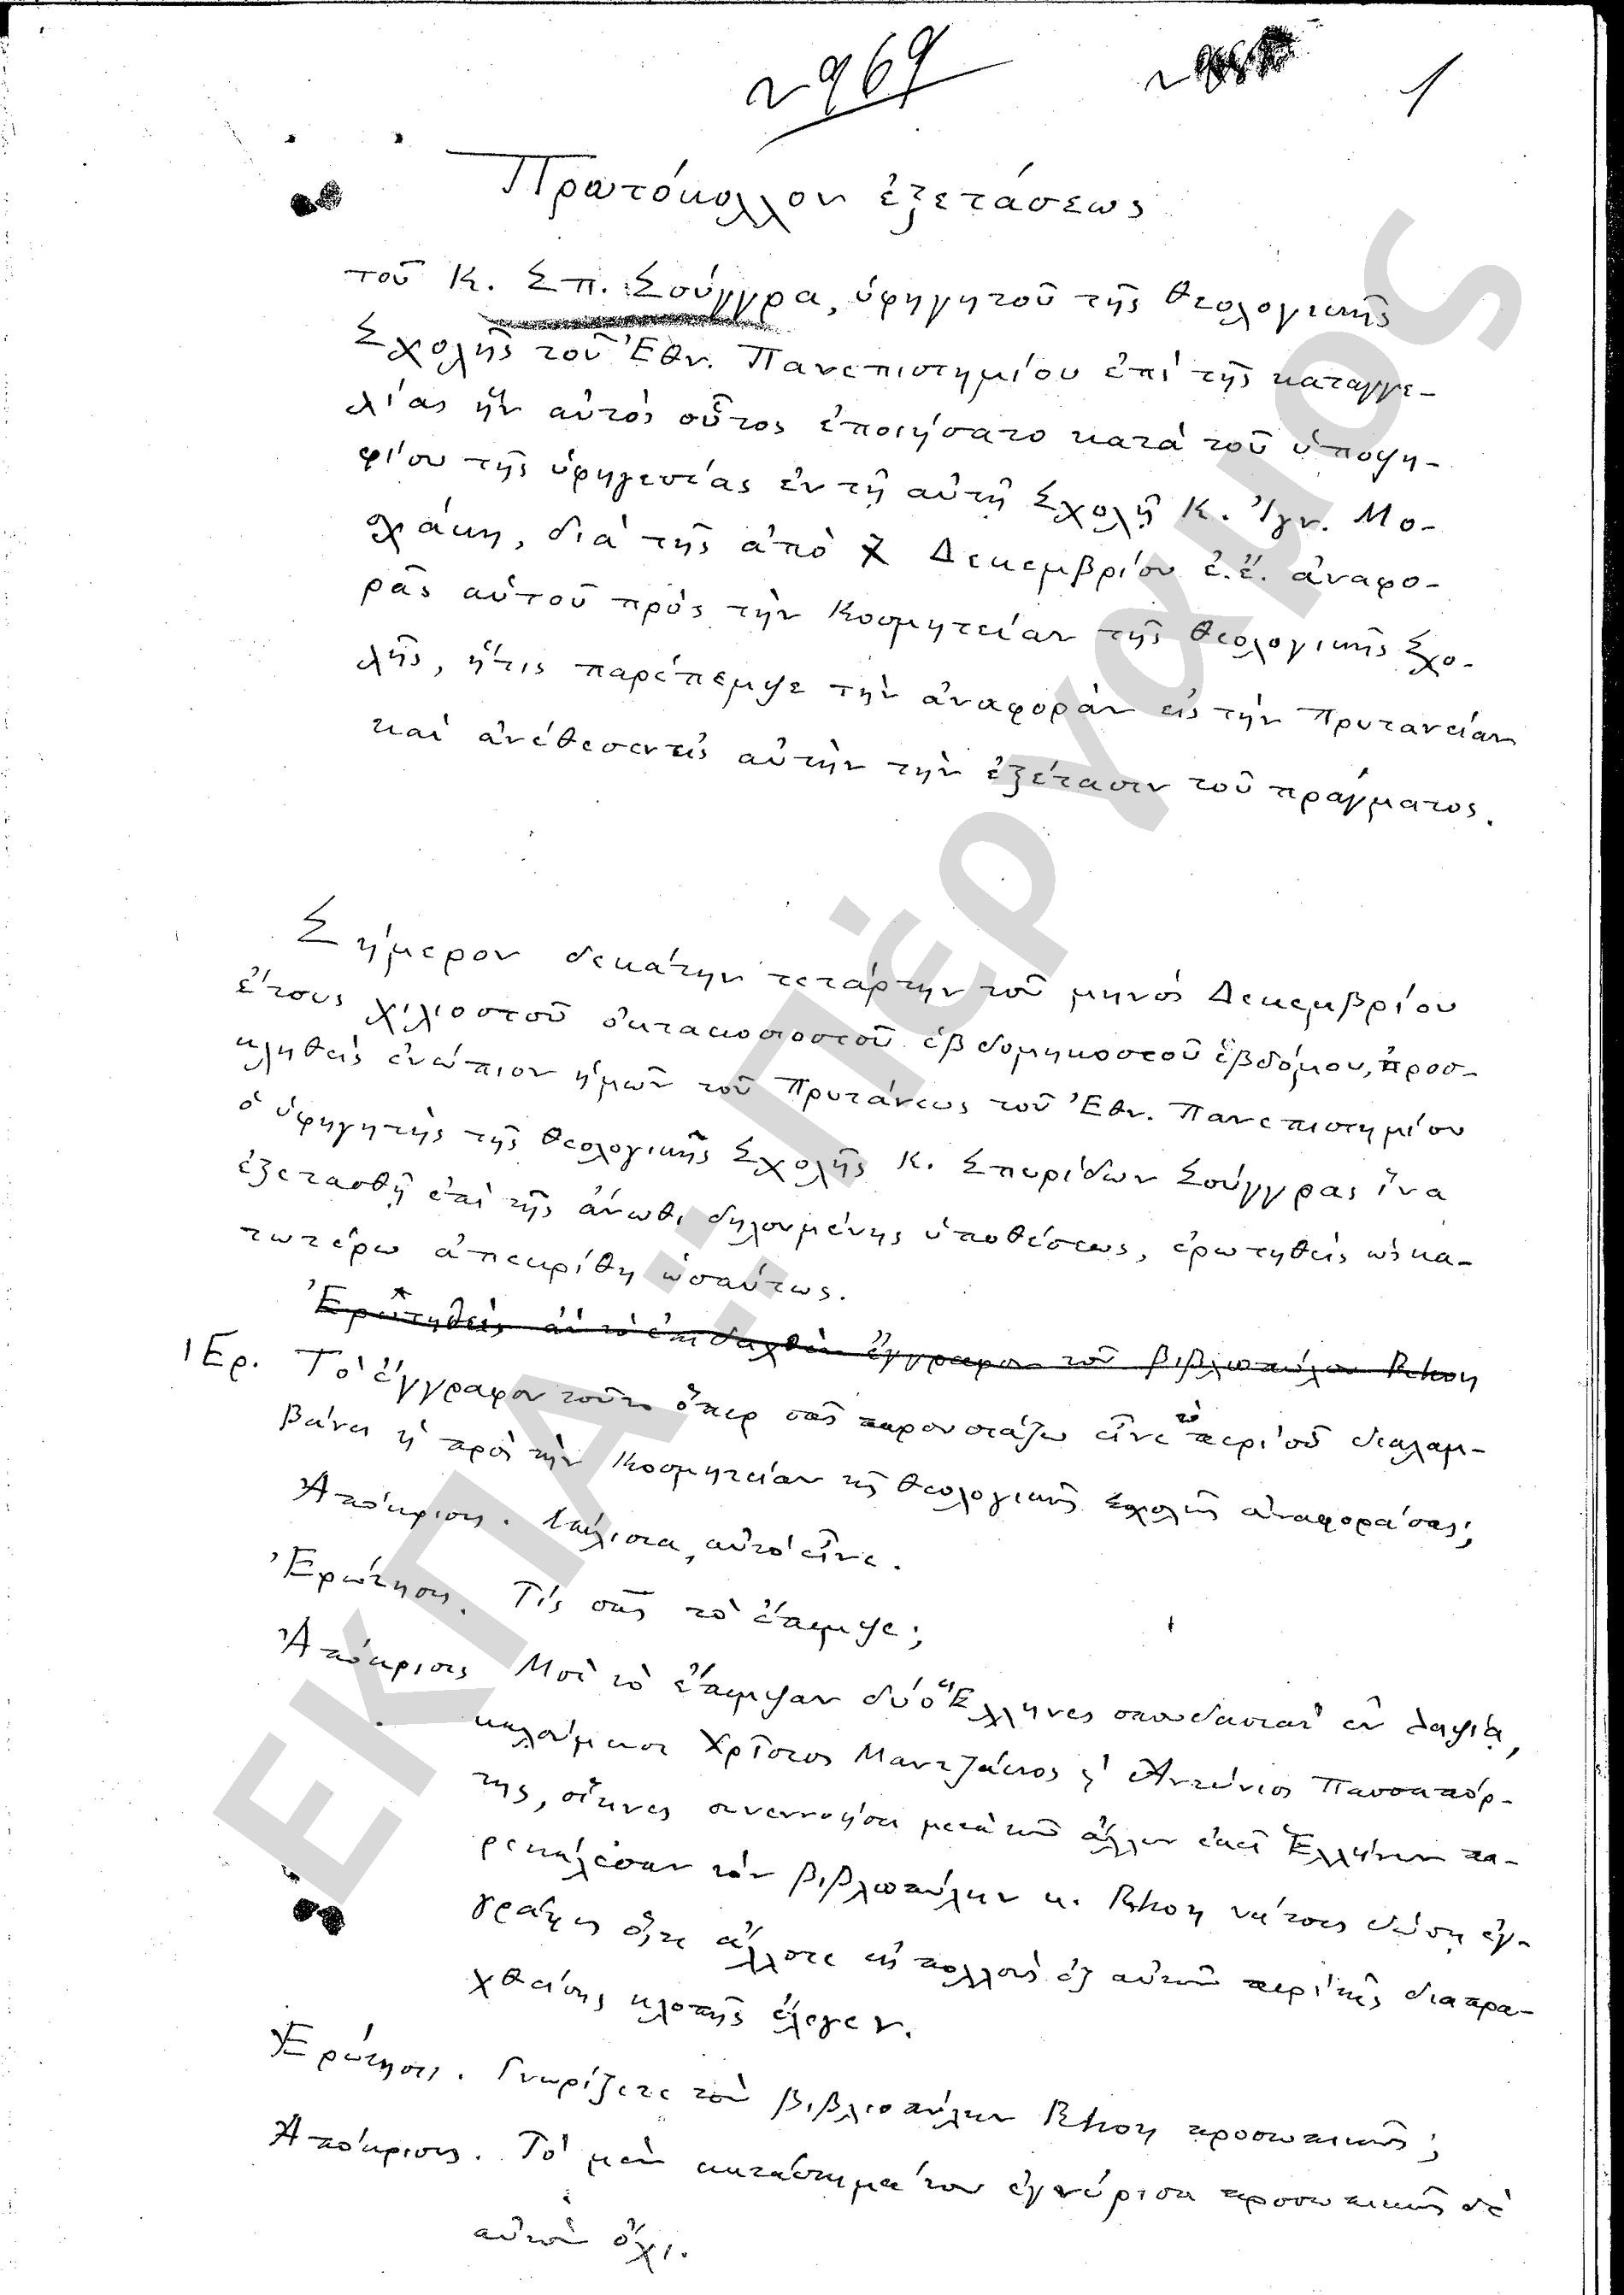 2969
1
Πρωτόκολλον ἐξετάσεως
τοῦ Κ. Σπ. Σούγγρα, ὑφηγητοῦ τῆς Θεολογικῆς
Σχολῆς τοῦ Ἐθν. Πανεπιστημίου ἐπὶ τῆς καταγγε-
λίας ἣν αὐτὸς οὗτος ἐποιήσατο κατὰ τοῦ ὑποψη-
φίου τῆς ὑφηγεσίας ἐν τῇ αὐτῇ Σχολῇ Κ. Ἰγν. Μο-
σχάκη, διὰ τῆς ἀπὸ 7 Δεκεμβρίου ἐ.ἔ. ἀναφο-
ρᾶς αὐτοῦ πρὸς τὴν Κοσμητείαν τῆς Θεολογικῆς Σχο-
λῆς, ἥτις παρέπεμψε τὴν ἀναφορὰν εἰς τὴν Πρυτανείαν
καὶ ἀνέθεσεν εἰς αὐτὴν τὴν ἐξέτασιν τοῦ πράγματος.
Σήμερον δεκάτην τετάρτην τοῦ μηνὸς Δεκεμβρίου
ἔτους χιλιοστοῦ ὀκτακοσιοστοῦ ἑβδομηκοστοῦ ἑβδόμου, προσ-
κληθεὶς ἐνώπιον ἡμῶν τοῦ Πρυτάνεως τοῦ Ἐθν. Πανεπιστημίου
ὁ ὑφηγητὴς τῆς Θεολογικῆς Σχολῆς Κ. Σπυρίδων Σούγγρας ἵνα
ἐξετασθῇ ἐπὶ τῆς ἄνωθι δηλουμένης ὑποθέσεως, ἐρωτηθεὶς ὡς κα-
τωτέρω ἀπεκρίθη ὡσαύτως.
Ἐρωτηθεὶς ἂν τὸ ἐπιδειχθὲν ἔγγραφον τοῦ βιβλιοπώλου Rhoη
1 Ερ. Τὸ ἔγγραφον τοῦτο ὅπερ σᾶς παρουσιάζω εἶνε τὸ περὶ οὗ διαλαμ-
βάνει ἡ πρὸς τὴν Κοσμητείαν τῆς Θεολογικῆς Σχολῆς ἀναφορά σας;
Ἀπόκρισις. Μάλιστα, αὐτὸ εἶνε.
Ἐρώτησις. Τίς σᾶς τὸ ἔπεμψε;
Ἀπόκρισις Μοὶ τὸ ἔπεμψαν δύο Ἕλληνες σπουδασταὶ ἐν Λειψίᾳ,
καλούμενοι Χρῖστος Μαντζάκος κ' Ἀντώνιος
της, οἵτινες συνεννοήσει μετὰ τῶν ἄλλων ἐκεῖ Ἑλλήνων πα-
ρεκάλεσαν τὸν βιβλιοπώλην κ. Rhoη νὰ τοῖς δώσῃ ἐγ-
γράφως ὅ,τι ἄλλοτε εἰς πολλοὺς ἐξ αὐτῶν περὶ τῆς διαπρα-
χθείσης κλοπῆς ἔλεγεν.
Ἐρώτησις. Γνωρίζετε τὸν βιβλιοπώλην Rhoη προσωπικῶς;
Ἀπόκρισις. Τὸ μὲν κατάστημά του ἐγνώρισα προσωπικῶς δὲ
αὐτὸν ὄχι.
ΕΚΠΑ :: Πέργαμος